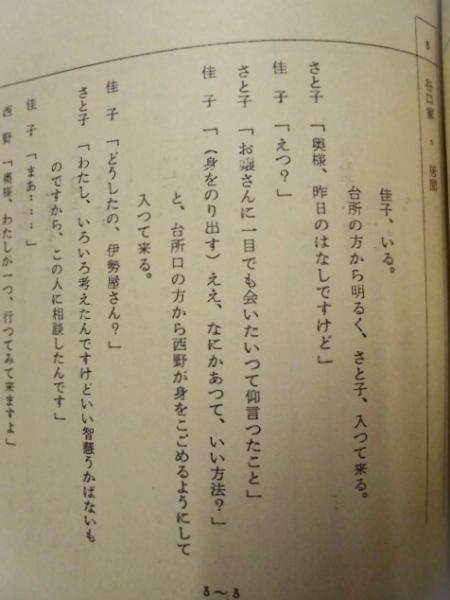 8　谷口家・居間
佳子、いる。
台所の方から明るく、さと子、入つて来る。
さと子「奥様、昨日のはなしですけど」
佳　子「えつ？」
さと子「お嬢さんに一目でも会いたいつて仰言つたこと」
佳　子「（身をのり出す）ええ、なにかあつて、いい方法？」
と、台所口の方から西野が身をこごめるようにして
入つて来る。
佳　子「どうしたの、伊勢屋さん？」
さと子「わたし、いろいろ考えたんですけどいい智慧うかばないも
のですから、この人に相談したんです」
佳　子「まあ……」
西　野「奥様、わたしが一つ、行つてみて来ますよ」
8～8